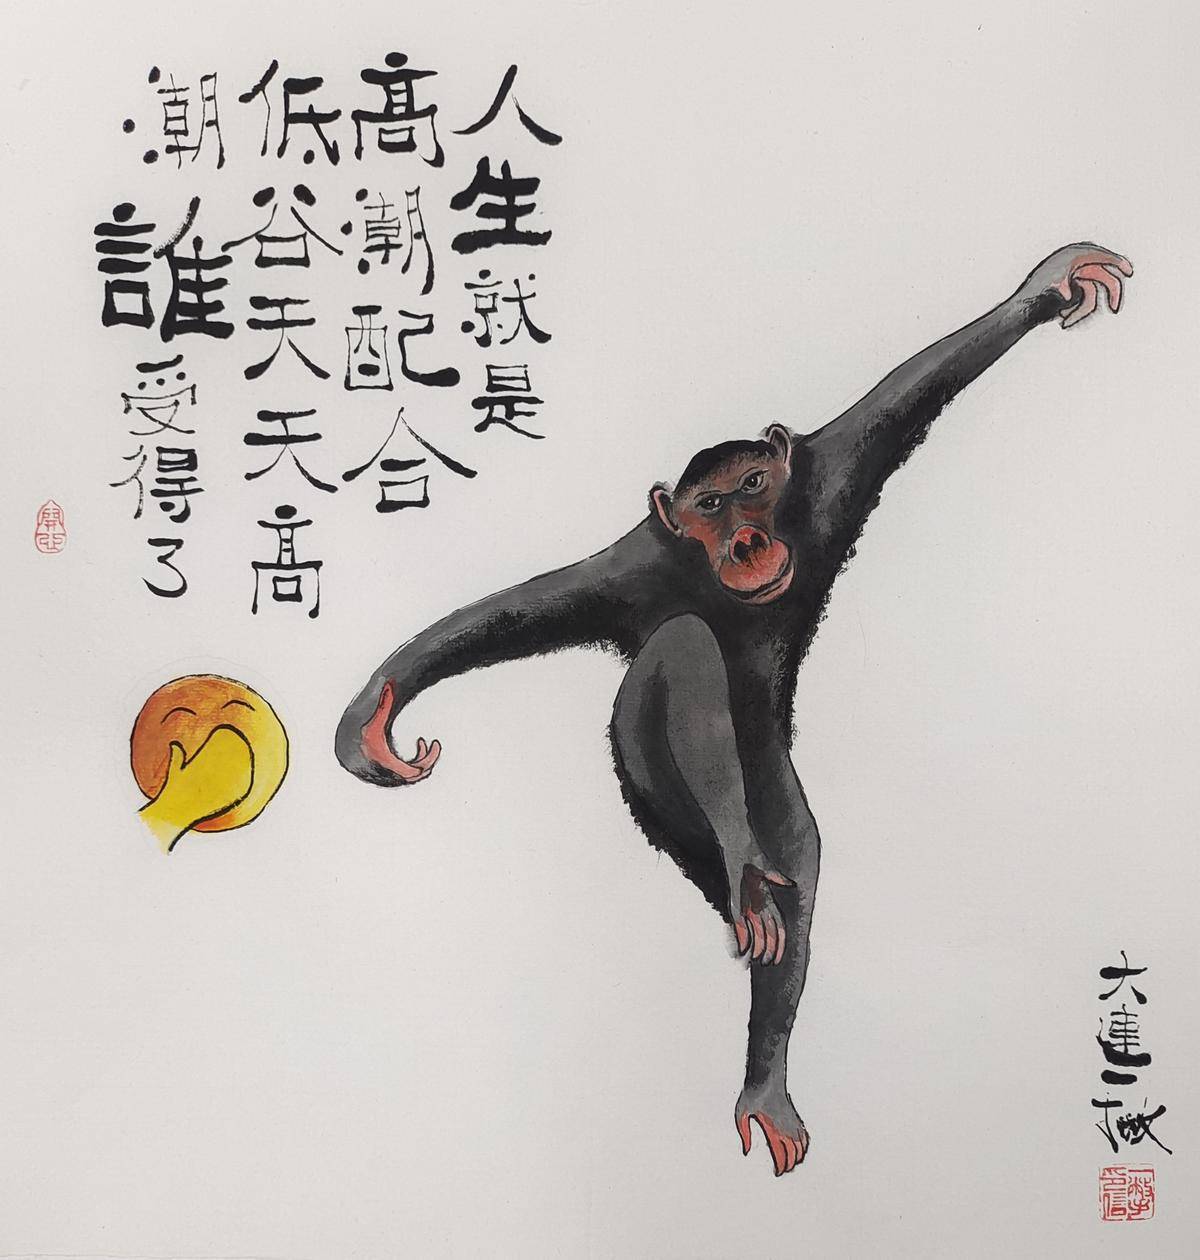 人生就是
高潮配合
低谷天天高
潮誰受得了
大連一撇